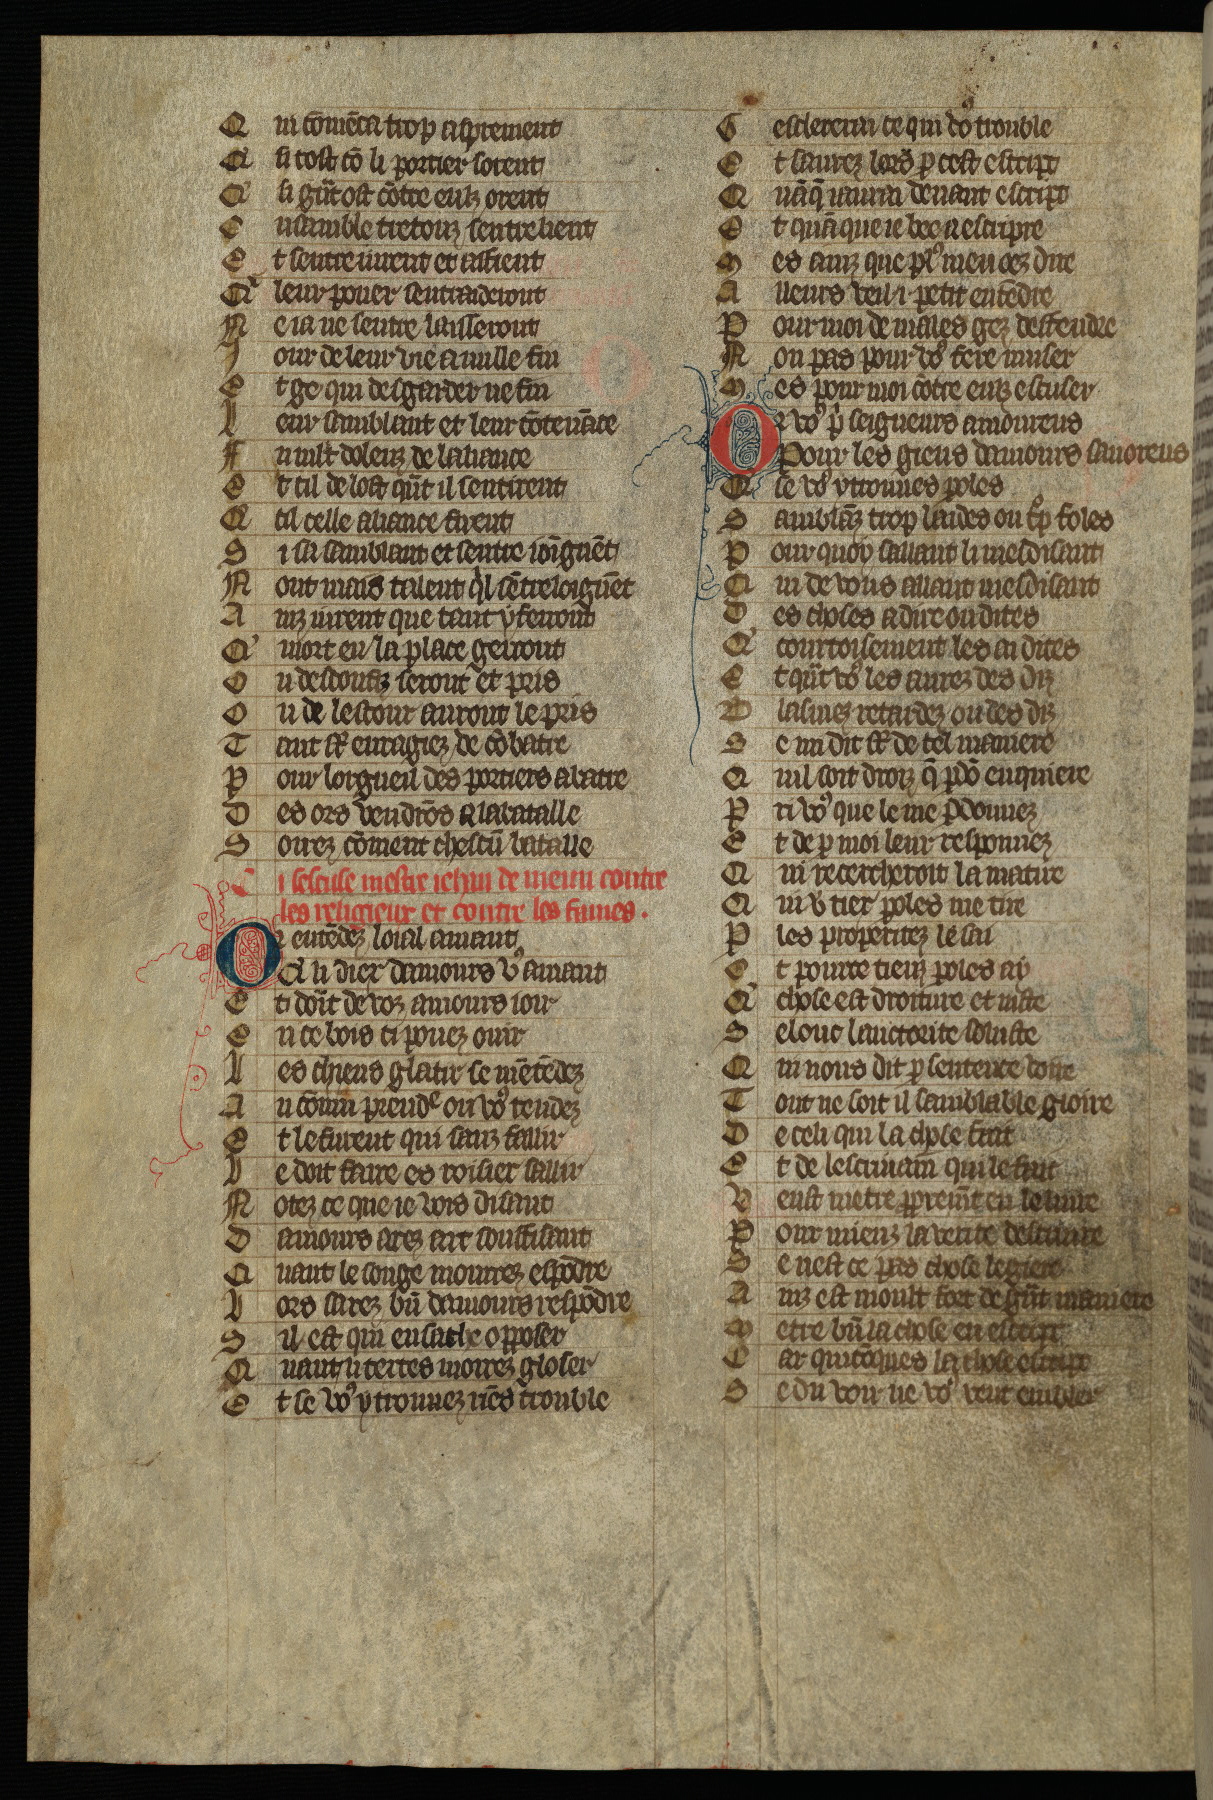 Q ui cōmēca trop asprement
Q si tost cō li portier lorent
Q si gūt ost cōtre eulz orent
E nsamble trétouz sentrelient
E t sentre iurent et afient
Q leur pouer sentraideront
N e ia ne sentre laisseront
J our de leur vie a nulle fin
E t ge qui desgarder ne fin
L eur samblant et leur cōtenāce
F u mlt dolenz de laliance
E t cil de lost qūt il sentirent
Q cil celle aliance firent
S i sasamblent et sentre ioignēt
N ont mais talent ql sētreloignēt
A inz iurent que tant y ferront
Q mort en la place gerront
O u desconfiz seront et pris
O u de lestour auront le pris
T ant st enragiez de cōbatre
P our lorgueil des portiers abatre
D es ors vendrōs a la bataille
S oirez cōment chescū bataille
C i sescuse mestre iehan de meun contre
les religieux et contre les fames.
O r entēdez loial amant
Q li dier damours vo amant
E t doīt de voz amours ioir
E n ce bois ci pouez ouir
L es chiens glatir se mētēdez
A u cōnin prendre ou vo tendez
E t le furent qui sanz faillir
L e doit faire es roisier saillir
N otez ce que ie vois disant
D amours arez art souffisant
Q uant le songe morrez espōdre
L ors sarez bn damours respōdre
S il est qui en sache opposer
Q uant li tertes morrez gloser
E t se vo y trouuez riēs trouble
G esclererai ce qui vo trouble
E t saurez lors p cest escript
Q uāq iaurai deuant escript
E t quā que ie bee a escripre
M es ainz que pl men oez dire
A lleurs veil .i. petit entēdre
P our moi de males gez deffendre
N on pas pour vo fere muser
M es pour moi cōtre eulz escuser
O r vo pri seigneurs amoureus
Pour les gieus damours sauoreus
Q se vo y trouues poles
S amblāz trop laides ou trop foles
P our quoy saillant li mesdisant
Q ui de vous aillant mesdisant
D es choses a dire ou dites
Q courtoisement les ai dites
E t qūt vo les aurez des diz
B lasmez retardez ou des diz
S e mi dit st de tel maniere
Q uil soit droiz q pdō en quiere
P ri vo que le me pdonnez
E t de p moi leur responnez
Q ui recercheroit la matire
Q ui v tier poles me tire
P les proprietez le sai
E t pource tiens poles ay
Q chose est droiture et iuste
S elonc lauctorite saluste
Q ui nous dit p sentence voire
T out ne soit il samblable gloire
D e celi qui la chose fait
E t de lescriuain qui le fait
V eust metre ppreimēt en le liure
P our mieuz la verite descriure
S e nest ce pas chose legiere
A inz est moult fort de gūt maniere
M etre bn la chose en escript
C ar quicōques la chose escript
S e du voir ne vo veut embler